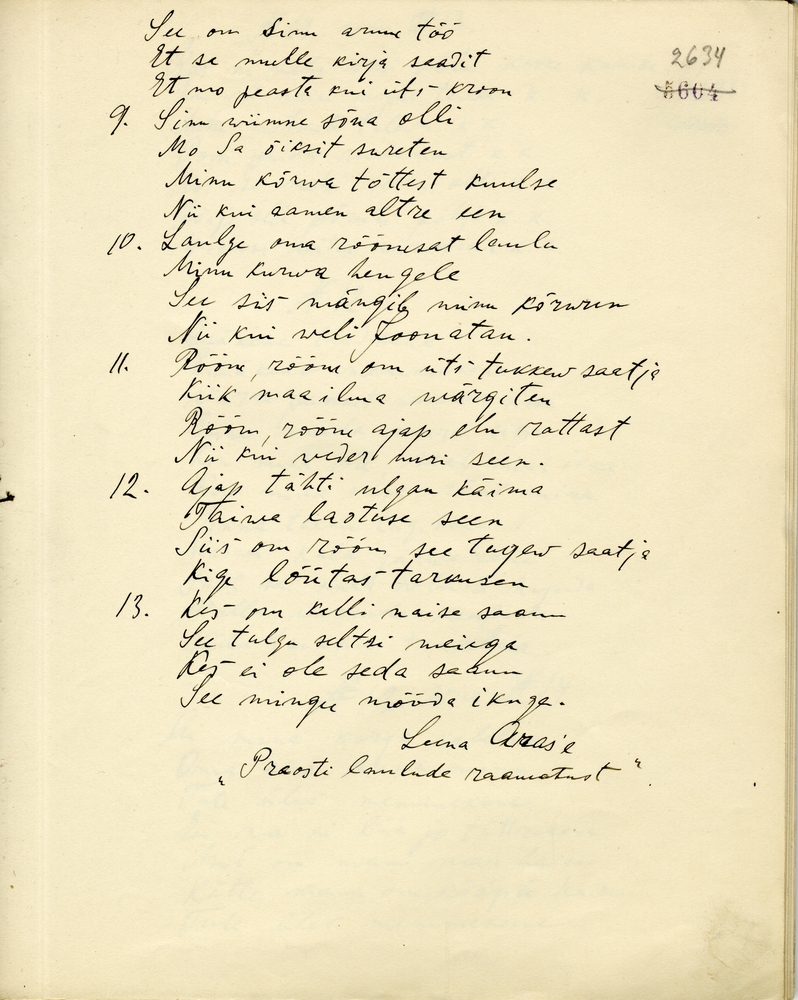 See om Sinu armu töö
Et sa mulle kirja saadit
Et mo peasta kui üts kroon
2634
5604
9. Sinu wiimne sõna olli
Mo Sa õiksit sureten
Minu kõrwa tõttest kuulse
Nii kui aamen altre een
10. Laulge oma röömsat laulu
Minu kurwa hengele
See siis mängib minu kõrwun
Nii kui weli Joonatan.
11. Rööm, rööm om üts tukkew saatja
Kiik maailma wärgiten
Rööm, rööm ajap elu rattast
Nii kui weder uuri seen.
12. Ajap tähti ulgan käima
Taiwa laotuse seen
Siis om rööm see tugew saatja
Kige löütas tarkusen
13. Kes om kelli naise saanu
See tulgu seltsi meiega
Kes ei ole seda saanu
See mingu mööda ikuga.
Leena
„Praosti laulude raamatust"